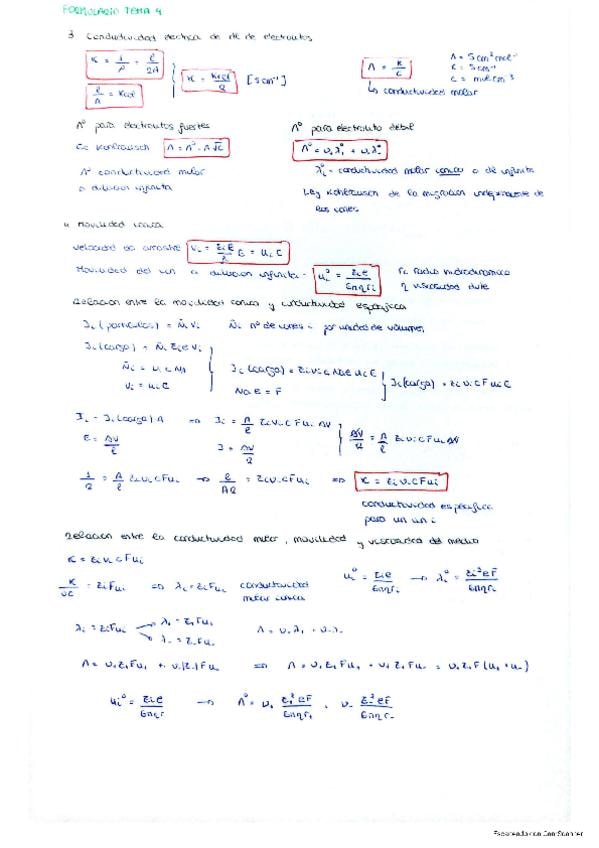 FORMULARIO TEMA 4
3 Conductividad electrica de de electrolitos
K = 1/ρ = l/RA
l/A = Kcel
K = Kcel/R [S cm⁻¹]
Λ = K/C
↳ conductividad molar
Λ = S cm² mol⁻¹
K = S cm⁻¹
C = mol cm⁻³
Λ° para electrolitos fuertes
Ec Kohlrausch Λ = Λ° - A√C
Λ° conductividad molar
a dilución infinita
Λ° para electrolito debil
Λ° = ν₊λ₊° + ν₋λ₋°
λ°ᵢ = conductividad molar iónica a dil infinita
Ley Kohlrausch de la migración independiente de
los iones
4 Movilidad ionica
velocidad de arrastre vᵢ = E = uᵢ E
Movilidad del ion a dilución infinita - uᵢ° = zᵢe/6πηrᵢ
rᵢ radio hidrodinámico
η viscosidad dvte
Relacion entre la movilidad ionica y conductividad específica
Jᵢ (partículas) = Ñᵢ vᵢ Ñᵢ nº de iones i por unidad de volumen
Jᵢ (carga) = Ñᵢ zᵢe vᵢ
Ñᵢ = νᵢ C NA
vᵢ = uᵢ E
Jᵢ (carga) = zᵢ νᵢ C NA e uᵢ E
NA e = F
Jᵢ (carga) = zᵢ νᵢ C F uᵢ E
Iᵢ = Jᵢ (carga) · A ⇒ Iᵢ = A/l zᵢ νᵢ C F uᵢ ΔV
E = ΔV/l
I = ΔV/R
ΔV/R = A/l zᵢ νᵢ C F uᵢ ΔV
1/R = A/l zᵢ νᵢ C F uᵢ ⇒ l/AR = zᵢ νᵢ C F uᵢ ⇒ K = zᵢ νᵢ C F uᵢ
conductividad específica
para un ion i
Relación entre la conductividad molar, movilidad y viscosidad del medio
K = zᵢ νᵢ C F uᵢ
K/νC = zᵢ F uᵢ ⇒ λᵢ = zᵢ F uᵢ conductividad
molar iónica
uᵢ° = zᵢe/6πηrᵢ → λᵢ° = zᵢ²eF/6πηrᵢ
λᵢ = zᵢ F uᵢ
λ₊ = z₊ F u₊
λ₋ = z₋ F u₋
Λ = ν₊ λ₊ + ν₋ λ₋
Λ = ν₊ z₊ F u₊ + ν₋ |z₋| F u₋ ⇒ Λ = ν₊ z₊ F u₊ + ν₊ z₊ F u₋ = ν₊ z₊ F (u₊ + u₋)
uᵢ° = zᵢe/6πηr → Λ° = ν₊ z₊²eF/6πηr₊ + ν₋ z₋²eF/6πηr₋
Escaneado con CamScanner